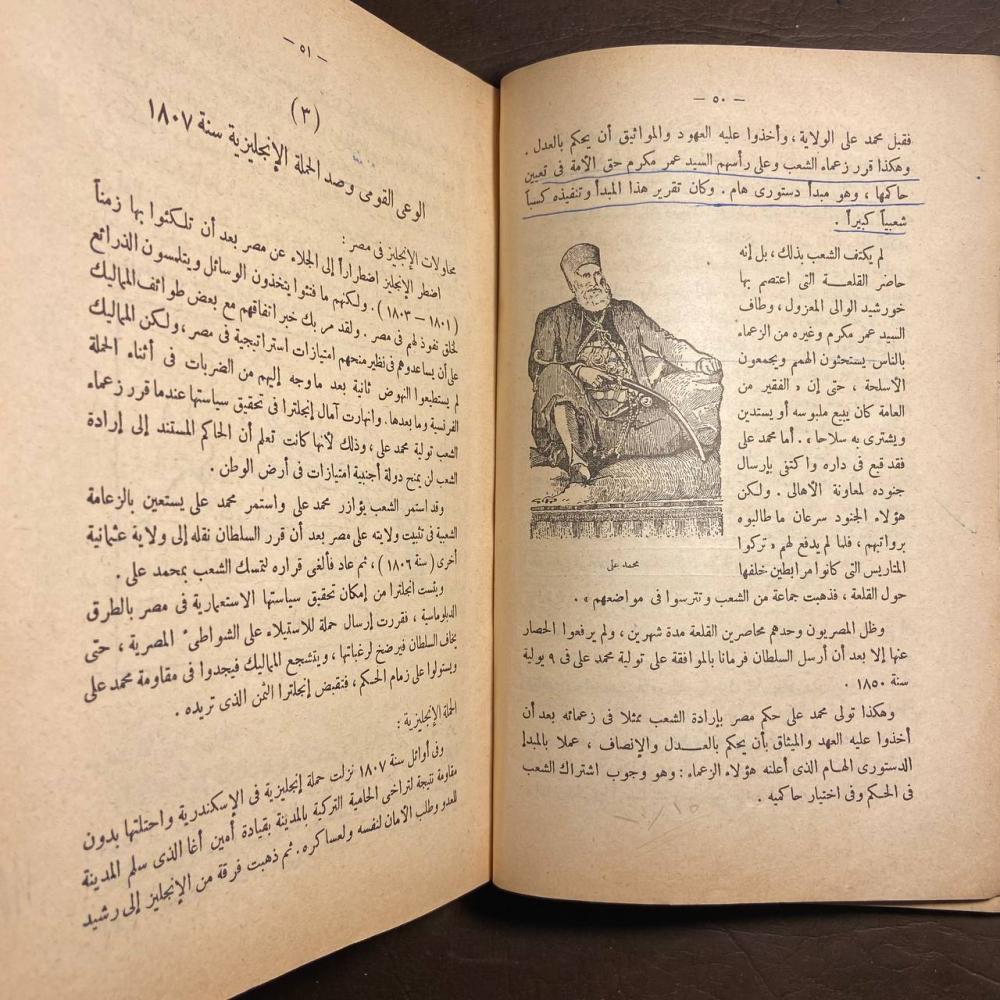 — ٥٠ —
فقبل محمد على الولاية، وأخذوا عليه العهود والمواثيق أن يحكم بالعدل .
وهكذا قرر زعماء الشعب وعلى رأسهم السيد عمر مكرم حق الأمة فى تعيين
حاكمها ، وهو مبدأ دستورى هام . وكان تقرير هذا المبدأ وتنفيذه كسباً
شعبياً كبيراً .
لم يكتف الشعب بذلك، بل إنه
حاصر القلعة التى اعتصم بها
خورشيد الوالى المعزول ، وطاف
السيد عمر مكرم وغيره من الزعماء
بالناس يستحثون الهمم ويجمعون
الأسلحة ، حتى إن « الفقير من
العامة كان يبيع ملبوسه أو يستدين
ويشترى به سلاحا » . أما محمد على
فقد قبع فى داره واكتفى بإرسال
جنوده لمعاونة الأهالى . ولكن
هؤلاء الجنود سرعان ما طالبوه
برواتبهم ، فلما لم يدفع لهم « تركوا
المتاريس التى كانوا مرابطين خلفها
محمد على
حول القلعة ، فذهبت جماعة من الشعب وتترسوا فى مواضعهم » .
وظل المصريون وحدهم محاصرين القلعة مدة شهرين ، ولم يرفعوا الحصار
عنها إلا بعد أن أرسل السلطان فرمانا بالموافقة على تولية محمد على فى ٩ يولية
سنة ١٨٥٠ .
وهكذا تولى محمد على حكم مصر بإرادة الشعب ممثلا فى زعمائه بعد أن
أخذوا عليه العهد والميثاق بأن يحكم بالعدل والإنصاف ، عملا بالمبدإ
الدستورى الهام الذى أعلنه هؤلاء الزعماء : وهو وجوب اشتراك الشعب
فى الحكم وفى اختيار حاكميه .
— ٥١ —
( ٣ )
الوعى القومى وصد الحملة الإنجليزية سنة ١٨٠٧
محاولات الإنجليز فى مصر :
اضطر الإنجليز اضطراراً إلى الجلاء عن مصر بعد أن تلكئوا بها زمناً
( ١٨٠١ — ١٨٠٣ ) . ولكنهم ما فتئوا يتخذون الوسائل ويتلمسون الذرائع
لخلق نفوذ لهم فى مصر . ولقد مر بك خبر اتفاقهم مع بعض طوائف المماليك
على أن يساعدوهم فى نظير منحهم امتيازات استراتيجية فى مصر ، ولكن المماليك
لم يستطيعوا النهوض ثانية بعد ما وجه إليهم من الضربات فى أثناء الحملة
الفرنسية وما بعدها . وانهارت آمال إنجلترا فى تحقيق سياستها عندما قرر زعماء
الشعب تولية محمد على ، وذلك لأنها كانت تعلم أن الحاكم المستند إلى إرادة
الشعب لن يمنح دولة أجنبية امتيازات فى أرض الوطن .
وقد استمر الشعب يؤازر محمد على واستمر محمد على يستعين بالزعامة
الشعبية فى تثبيت ولايته على مصر بعد أن قرر السلطان نقله إلى ولاية عثمانية
أخرى ( سنة ١٨٠٦ ) ، ثم عاد فألغى قراره لتمسك الشعب بمحمد على .
ويئست انجلترا من إمكان تحقيق سياستها الاستعمارية فى مصر بالطرق
الدبلوماسية ، فقررت إرسال حملة للاستيلاء على الشواطىء المصرية ، حتى
يخاف السلطان فيرضخ لرغباتها ، ويتشجع المماليك فيجدوا فى مقاومة محمد على
ويستولوا على زمام الحكم ، فتقبض إنجلترا الثمن الذى تريده .
الحملة الإنجليزية :
وفى أوائل سنة ١٨٠٧ نزلت حملة إنجليزية فى الإسكندرية واحتلتها بدون
مقاومة نتيجة لتراخى الحامية التركية بالمدينة بقيادة أمين أغا الذى سلم المدينة
للعدو وطلب الأمان لنفسه ولعساكره . ثم ذهبت فرقة من الإنجليز إلى رشيد